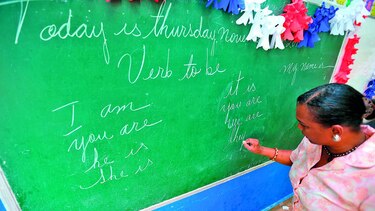 Today is thursday, Nove
Verb to be
My Name is
I am
You are
he is
she is
it is
you are
we are
they